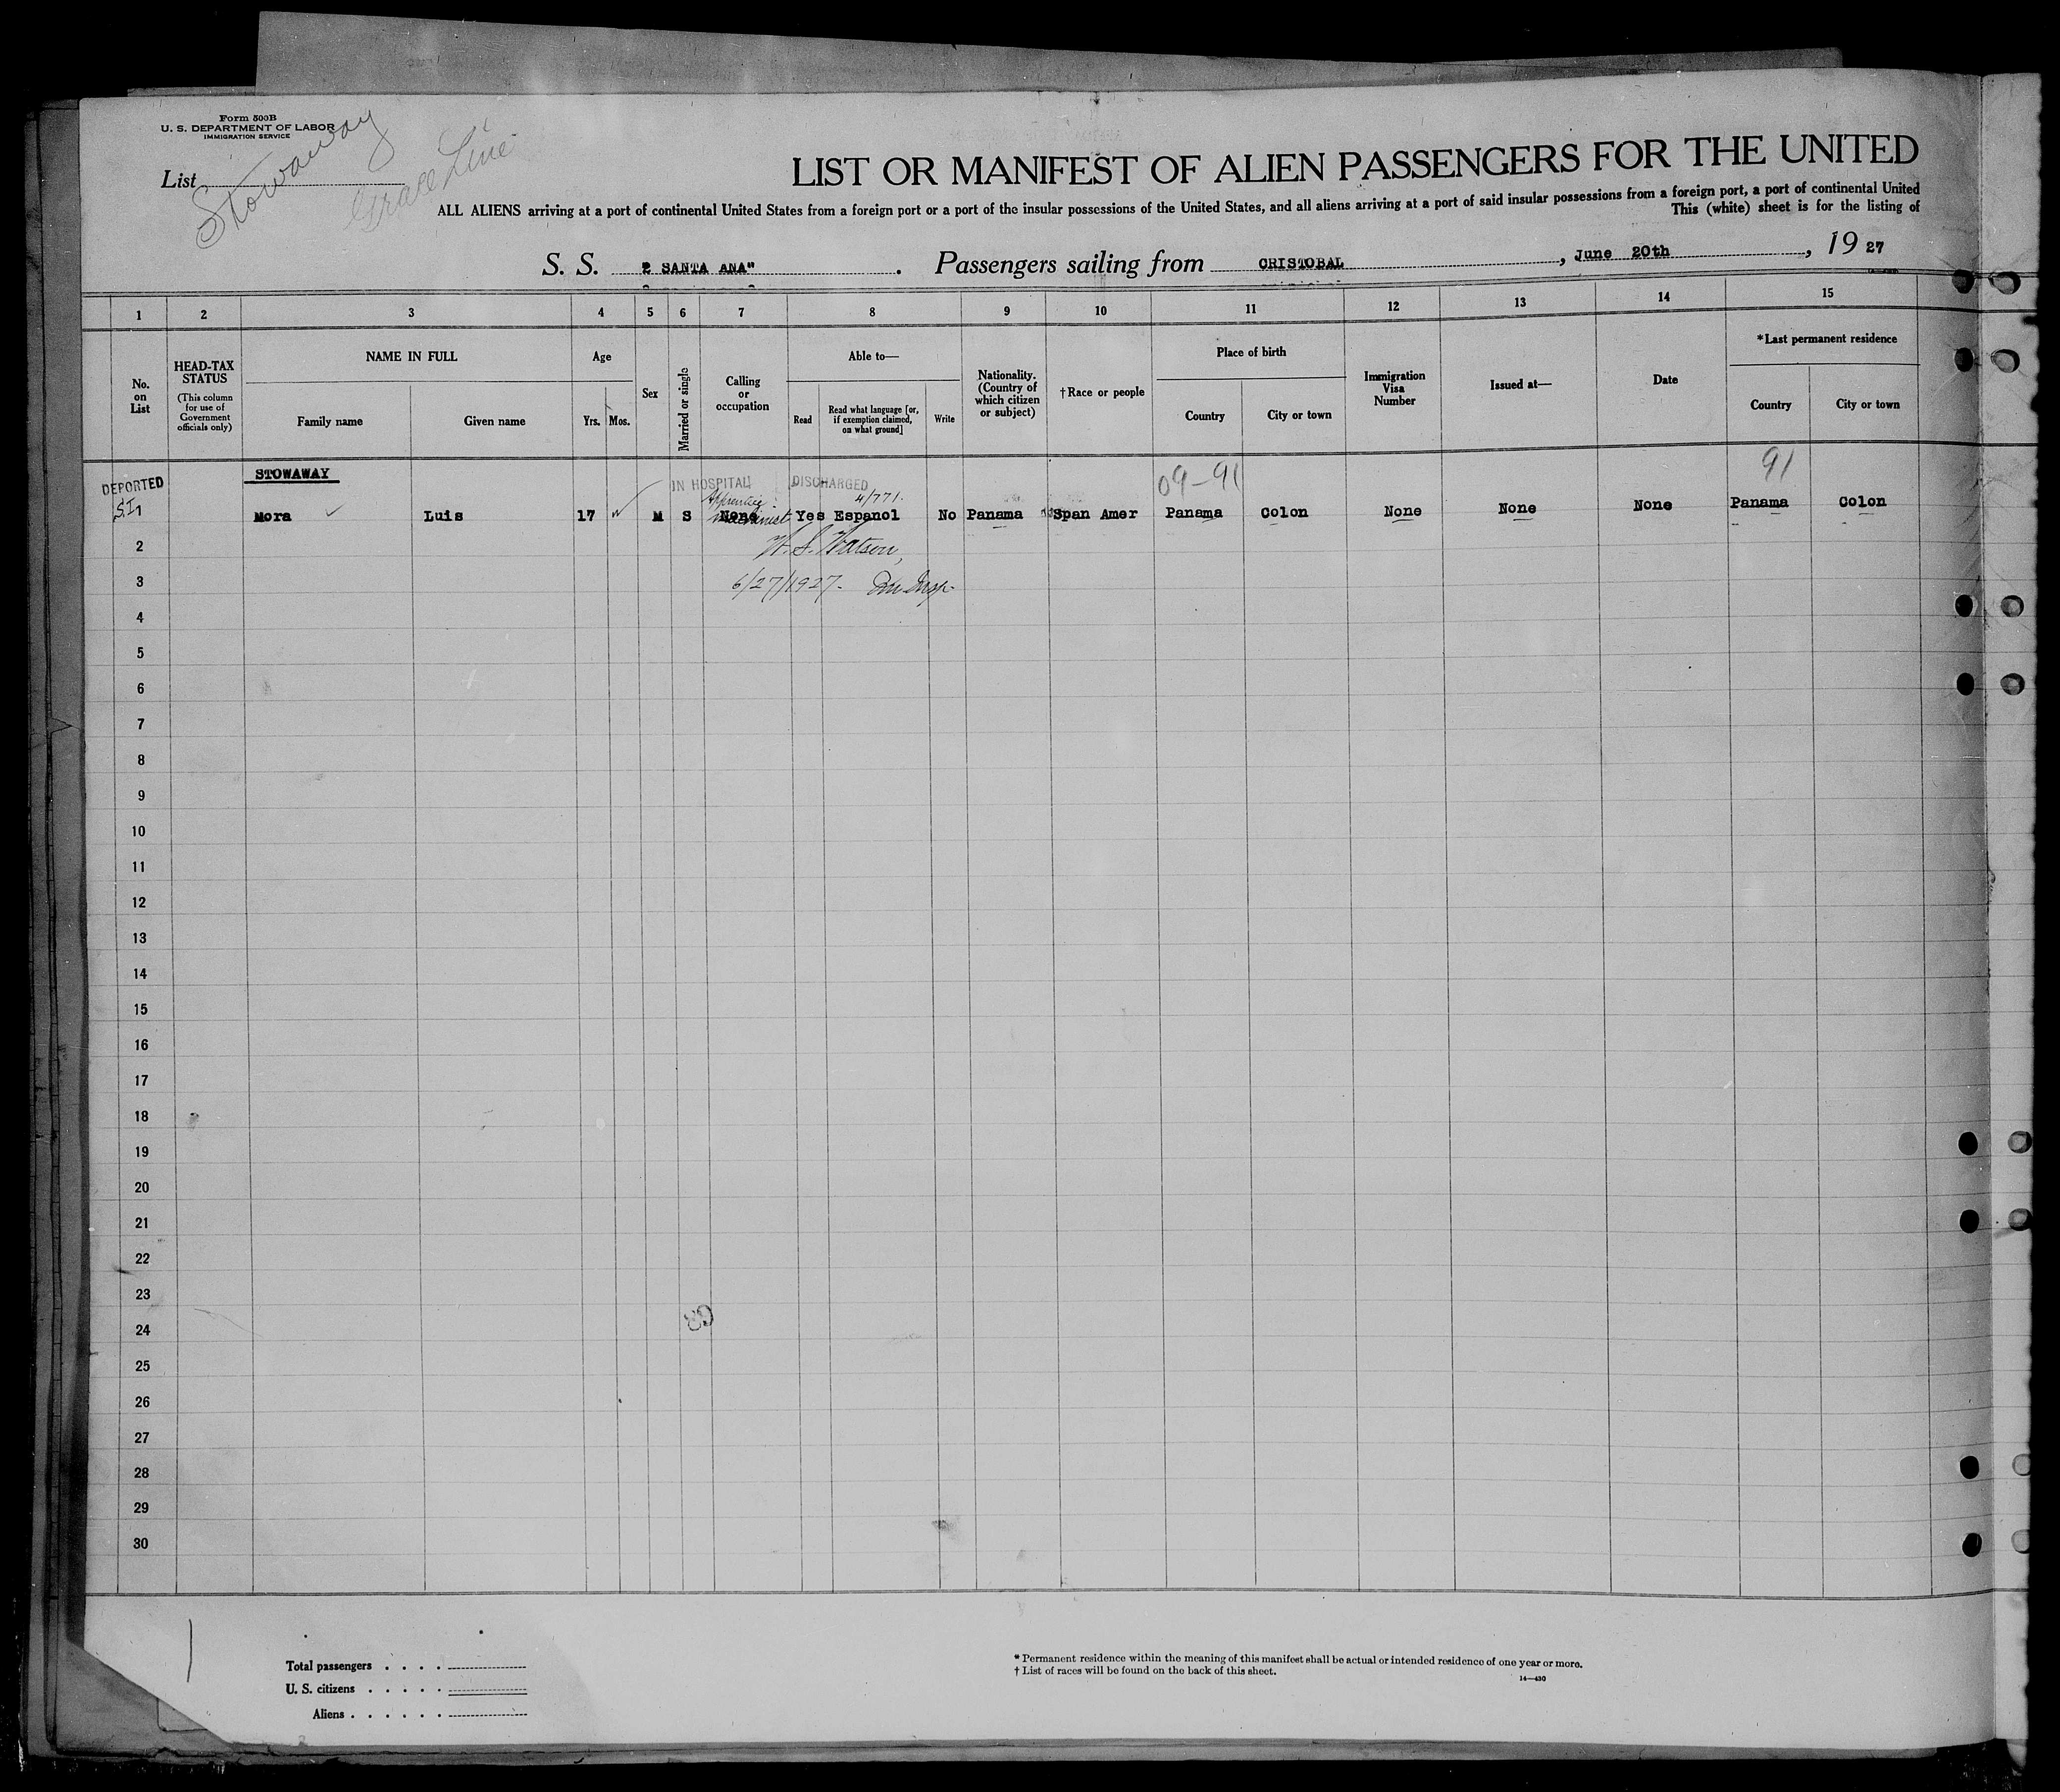 Form 500B
U. S. DEPARTMENT OF LABOR
IMMIGRATION SERVICE
List
Stowaway
Grace Line
LIST OR MANIFEST OF ALIEN PASSENGERS FOR THE UNITED
ALL ALIENS arriving at a port of continental United States from a foreign port or a port of the insular possessions of the United States, and all aliens arriving at a port of said insular possessions from a foreign port, a port of continental United
This (white) sheet is for the listing of
S. S. " SANTA ANA" . Passengers sailing from CRISTOBAL , June 20th , 19 27
1 2 3 4 5 6 7 8 9 10 11 12 13 14 15
No. on List
HEAD-TAX STATUS
(This column for use of Government officials only)
NAME IN FULL
Family name Given name
Age
Yrs. Mos.
Sex
Married or single
Calling or occupation
Able to—
Read
Read what language [or, if exemption claimed, on what ground]
Write
Nationality. (Country of which citizen or subject)
†Race or people
Place of birth
Country City or town
Immigration Visa Number
Issued at—
Date
*Last permanent residence
Country City or town
STOWAWAY
DEPORTED
S.I.
IN HOSPITAL DISCHARGED
09-91 91
Apprentice 4/771.
machinist
1 Mora Luis 17 M S None Yes Espanol No Panama Span Amer Panama Colon None None None Panama Colon
2 W. S. Watson,
3 6/27/1927-
4
5
6
7
8
9
10
11
12
13
14
15
16
17
18
19
20
21
22
23
24
25
26
27
28
29
30
Total passengers . . . .
U. S. citizens . . . . .
Aliens . . . . . .
* Permanent residence within the meaning of this manifest shall be actual or intended residence of one year or more.
† List of races will be found on the back of this sheet.
14—430